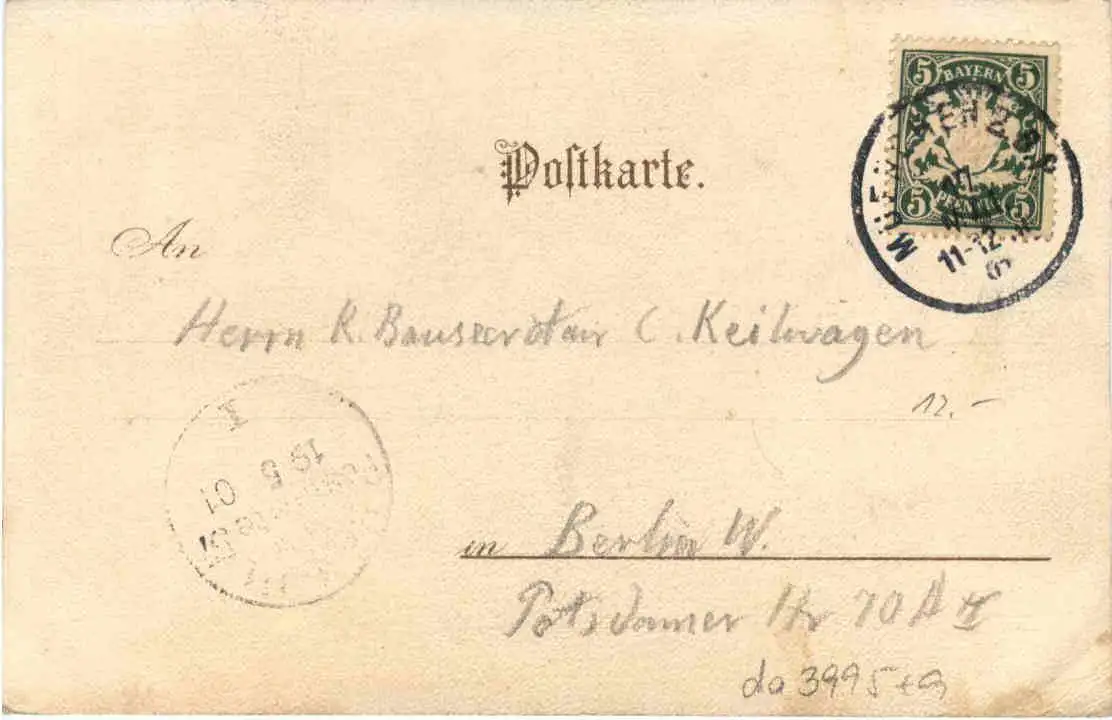 5 BAYERN 5
5 PFENNIG 5
MÜNCHEN 2 B.P.
11-12
Postkarte.
An
Herrn K. Bausecretair C. Keilwagen
12.-
19 5 01
in Berlin W.
Potsdamer Str 70 A II
da 3995